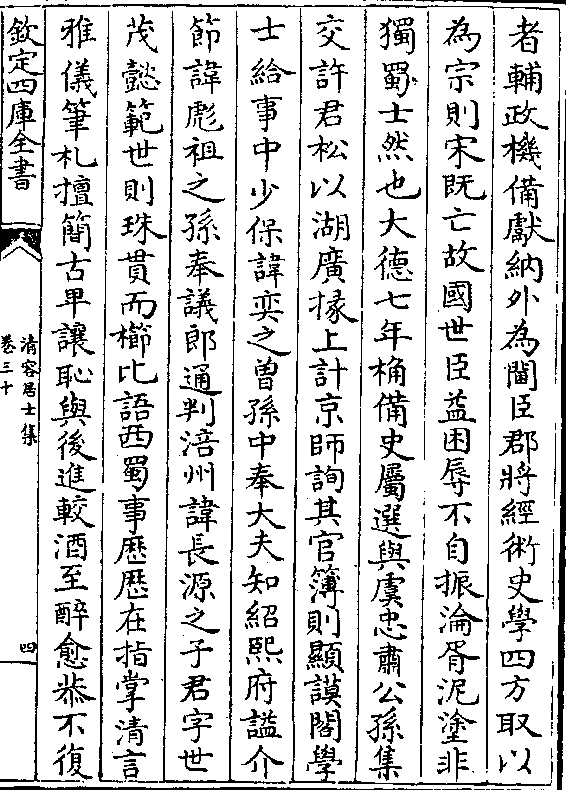 者輔政機備獻納外為閫臣郡將經術史學四方取以
為宗則宋既亡故國世臣益困辱不自振淪胥泥塗非
獨蜀士然也大德七年桷備史屬選與虞忠肅公孫集
交許君松以湖廣掾上計京師詢其官簿則顯謨閣學
士給事中少保諱奕之曽孫中奉大夫知紹熙府諡介
節諱彪祖之孫奉議郎通判涪州諱長源之子君字世
茂懿範世則珠貫而櫛比語西蜀事歴歴在指掌清言
雅儀筆札擅簡古卑讓恥與後進較酒至醉愈恭不復
欽定四庫全書
清容居士集
卷三十
四